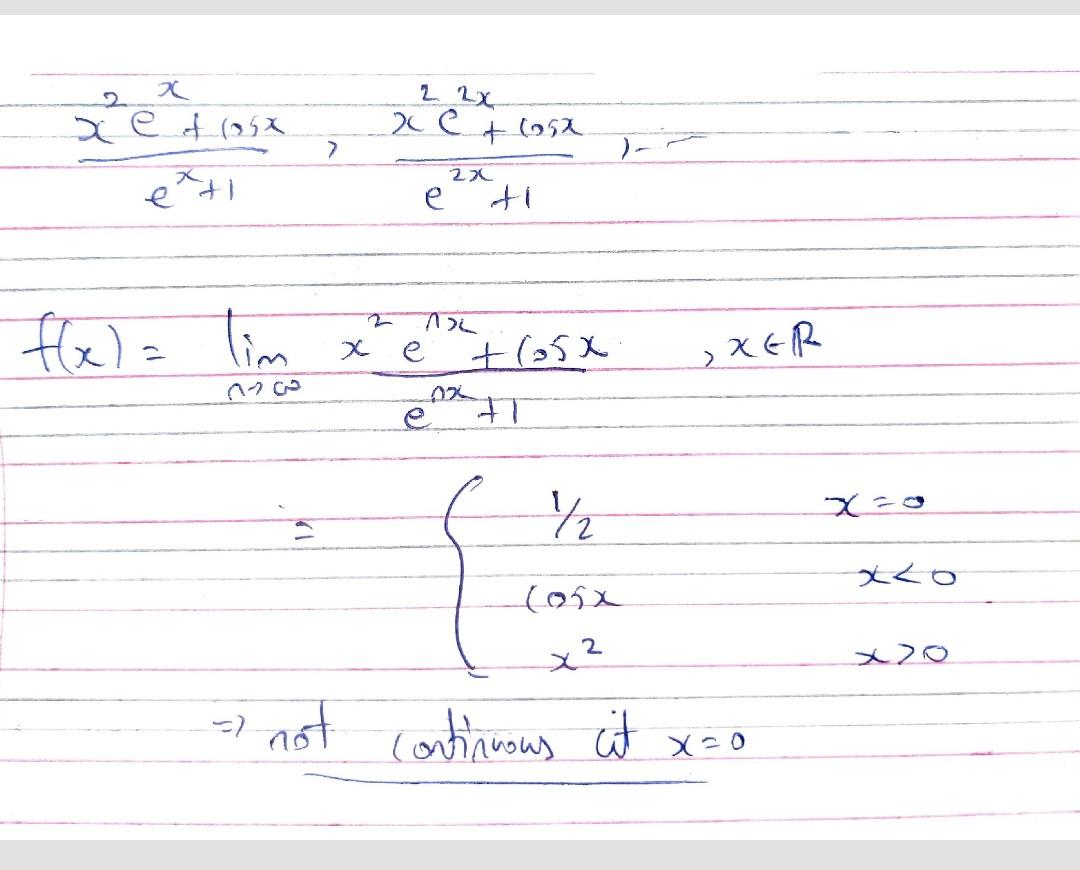 (x²eˣ + cosx)/(eˣ+1) , (x²e²ˣ + cosx)/(e²ˣ+1) , ---
f(x) = lim n→∞ (x²eⁿˣ + cosx)/(eⁿˣ+1) , x∈ℝ
= { 1/2 x=0
cosx x<0
x² x>0
=> not continuous at x=0